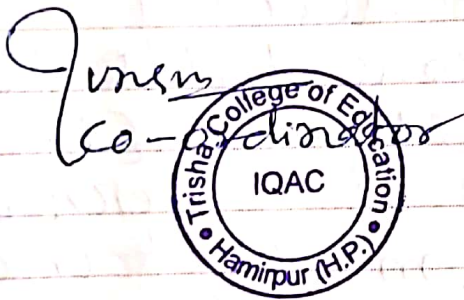 Co-ordinator
Trisha College of Education
IQAC
• Hamirpur (H.P.) •